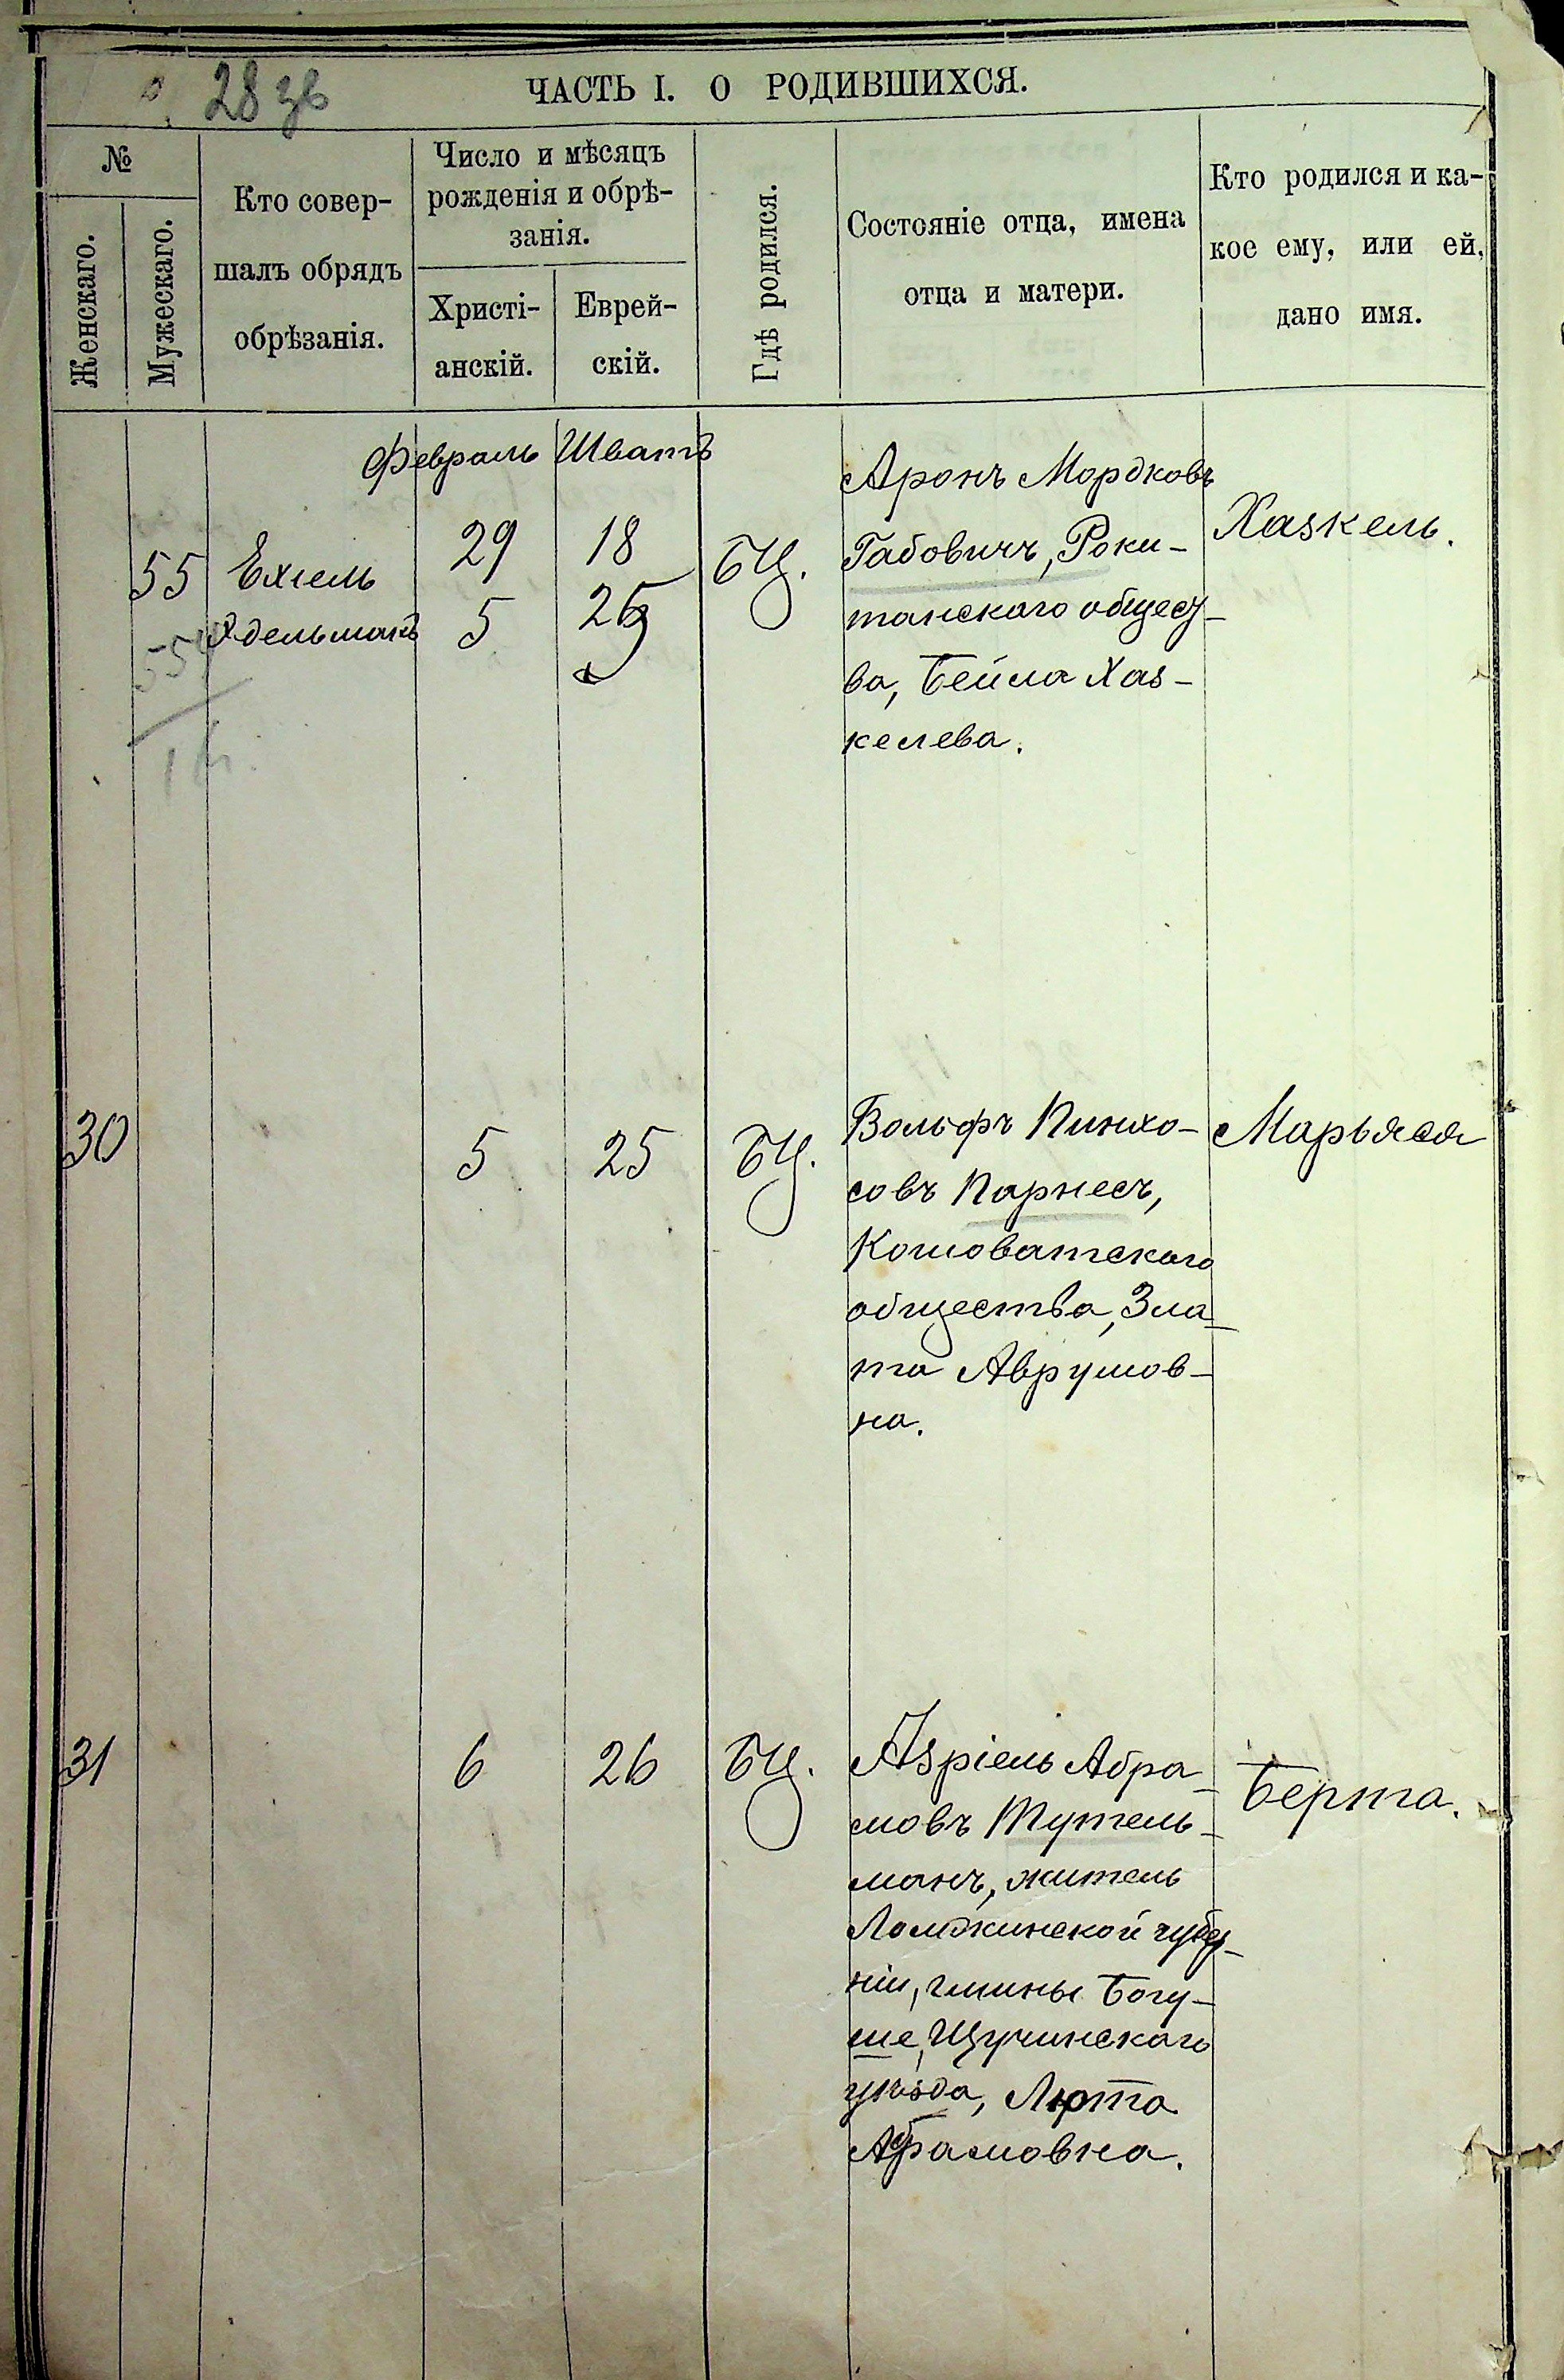 28 зв
ЧАСТЬ I. О РОДИВШИХСЯ.
№
Женскаго.
Мужескаго.
Кто совер-
шалъ обрядъ
обрѣзанія.
Число и мѣсяцъ
рожденія и обрѣ-
занія.
Христі-
анскій.
Еврей-
скій.
Гдѣ родился.
Состояніе отца, имена
отца и матери.
Кто родился и ка-
кое ему, или ей,
дано имя.
Февраль Шватъ
55
Ехіель
Эдельманъ
29
5
18
25
БЦ.
Аронъ Мордковъ
Габовичъ, Роки-
танскаго общест-
ва, Бейла Хас-
келева.
Хаскель.
30
5
25
БЦ.
Вольфъ Пинхо-
совъ Парнесъ,
Кошоватскаго
общества, Зла-
та Аврумов-
на.
Марьяся
31
6
26
БЦ.
Азріель Абра-
мовъ Тутель-
манъ, житель
Ломжинской губер-
ніи, гмины Богу-
ше, Щучинскаго
уѣзда, Люта
Абрамовна.
Берта.